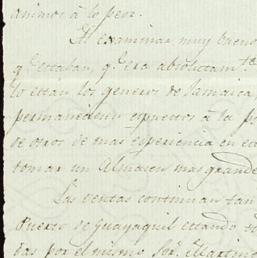 animos à lo peor.
Al examinar muy bueno
q.e estaban, q.e era absolutam.te
lo estan los generos de Jamaica,
permanecien espuestos à la pe
de otros de mas esperiencia en est
tomar un Almacen mas grande
Las ventas continuan tan
Puerto de Guayaquil estando
das por el mismo Sor. Martine